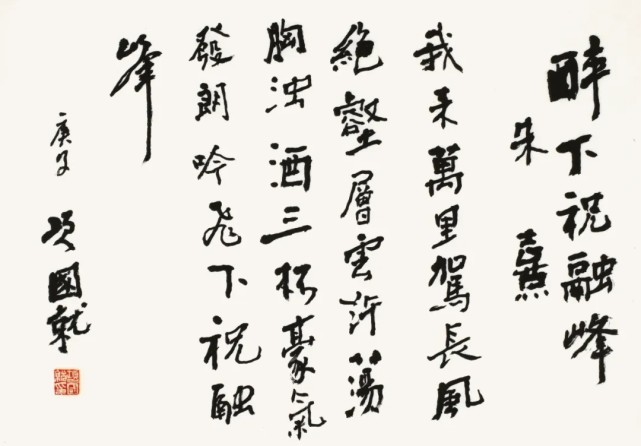 醉下祝融峰
朱熹
我来萬里駕長風
絕壑層雲許蕩
胸浊酒三杯豪氣
發朗吟飛下祝融
峰
庚子 國就